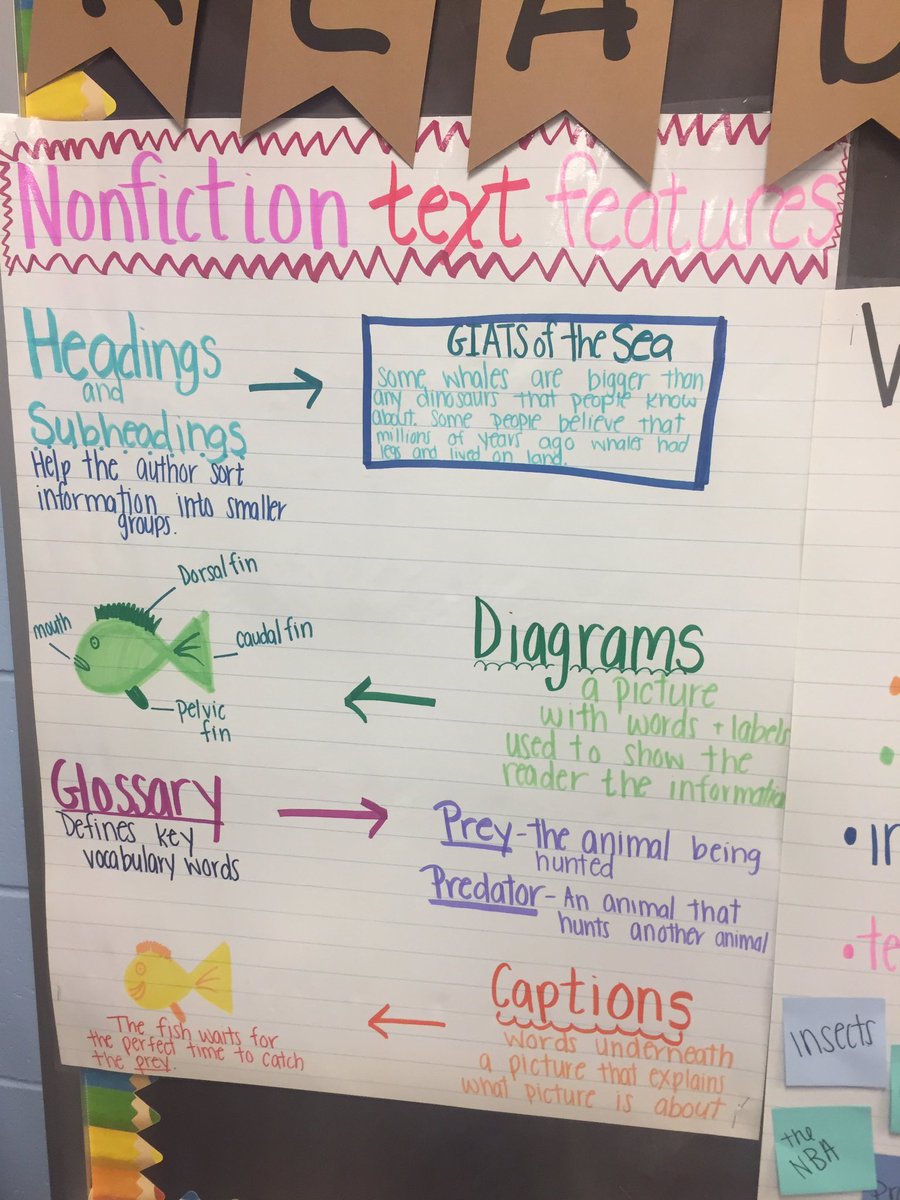 Nonfiction text features
Headings
and
Subheadings
Help the author sort
information into smaller
groups.
GIATS of the Sea
Some whales are bigger than
any dinosaurs that people know
about. Some people believe that
millions of years ago whales had
legs and lived on land.
Dorsal fin
mouth
caudal fin
pelvic
fin
Diagrams
a picture
with words + labels
used to show the
reader the information
Glossary
Defines key
vocabulary words
Prey - the animal being
hunted
Predator - An animal that
hunts another animal
The fish waits for
the perfect time to catch
the prey.
Captions
words underneath
a picture that explains
what picture is about
insects
the
NBA